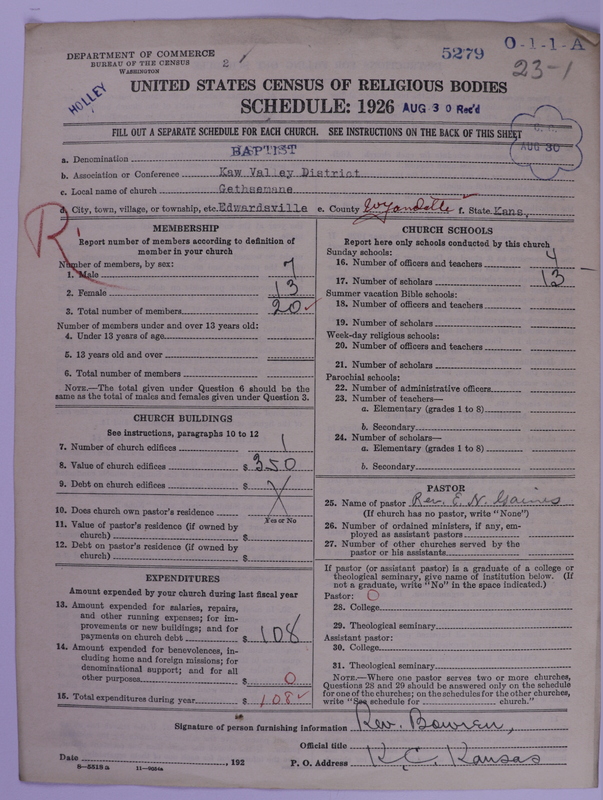 DEPARTMENT OF COMMERCE
BUREAU OF THE CENSUS
WASHINGTON
2
5279
O-1-1-A
23-1
HOLLEY
UNITED STATES CENSUS OF RELIGIOUS BODIES
SCHEDULE: 1926 AUG 30 Rec'd
FILL OUT A SEPARATE SCHEDULE FOR EACH CHURCH. SEE INSTRUCTIONS ON THE BACK OF THIS SHEET
AUG 30
a. Denomination BAPTIST
b. Association or Conference Kaw Valley District
c. Local name of church Gethsemane
d. City, town, village, or township, etc. Edwardsville e. County Wyandotte f. State Kans,
R
MEMBERSHIP
Report number of members according to definition of
member in your church
Number of members, by sex:
1. Male 7
2. Female 13
3. Total number of members 20
Number of members under and over 13 years old:
4. Under 13 years of age
5. 13 years old and over
6. Total number of members
NOTE.—The total given under Question 6 should be the
same as the total of males and females given under Question 3.
CHURCH BUILDINGS
See instructions, paragraphs 10 to 12
7. Number of church edifices 1
8. Value of church edifices $350
9. Debt on church edifices $ X
10. Does church own pastor's residence
Yes or No
11. Value of pastor's residence (if owned by
church) $
12. Debt on pastor's residence (if owned by
church) $
EXPENDITURES
Amount expended by your church during last fiscal year
13. Amount expended for salaries, repairs,
and other running expenses; for im-
provements or new buildings; and for
payments on church debt $108
14. Amount expended for benevolences, in-
cluding home and foreign missions; for
denominational support; and for all
other purposes $0
15. Total expenditures during year $108
CHURCH SCHOOLS
Report here only schools conducted by this church
Sunday schools:
16. Number of officers and teachers 4
17. Number of scholars 13
Summer vacation Bible schools:
18. Number of officers and teachers
19. Number of scholars
Week-day religious schools:
20. Number of officers and teachers
21. Number of scholars
Parochial schools:
22. Number of administrative officers
23. Number of teachers—
a. Elementary (grades 1 to 8)
b. Secondary
24. Number of scholars—
a. Elementary (grades 1 to 8)
b. Secondary
PASTOR
25. Name of pastor Rev. E. N. Gaines
(If church has no pastor, write "None")
26. Number of ordained ministers, if any, em-
ployed as assistant pastors
27. Number of other churches served by the
pastor or his assistants
If pastor (or assistant pastor) is a graduate of a college or
theological seminary, give name of institution below. (If
not a graduate, write "No" in the space indicated.)
Pastor: O
28. College
29. Theological seminary
Assistant pastor:
30. College
31. Theological seminary
NOTE.—Where one pastor serves two or more churches,
Questions 28 and 29 should be answered only on the schedule
for one of the churches; on the schedules for the other churches,
write "See schedule for church."
Signature of person furnishing information Rev. Bowren,
Official title
Date , 192 P. O. Address K. C. Kansas
8—5518a 11—9034a